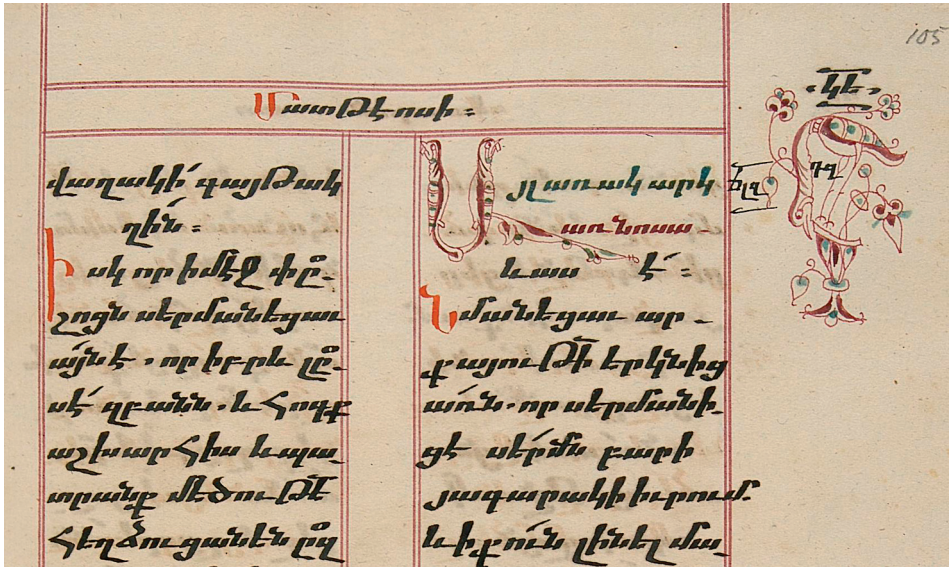 105
Մատթէոսի։
վաղակի՛ գայթակ
ղին։
Իսկ որ ի մէջ փը֊
շոցն սերմանեցաւ
այն է, որ իբրև լը֊
սէ զբանն. և հոգք
աշխարհիս և պա֊
տրանք մեծութե
հեղձուցանեն ըզ
կե
Այլ առակ արկ
առնոսա֊
և աս է՛։
Նմանեցաւ ար֊
քայութի երկնից
առն. որ սերմանի֊
ցէ սերմն բարի
յագարակի իւրում.
և ի քուն լինել մա֊